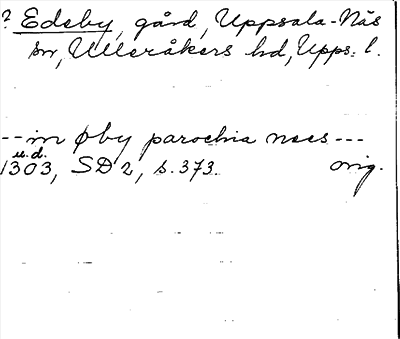 ? Edeby, gård, Uppsala-Näs
sn, Ulleråkers hd, Upps. l.
--in øby parochia næs---
u.d.
1303, SD 2, s. 373. orig.